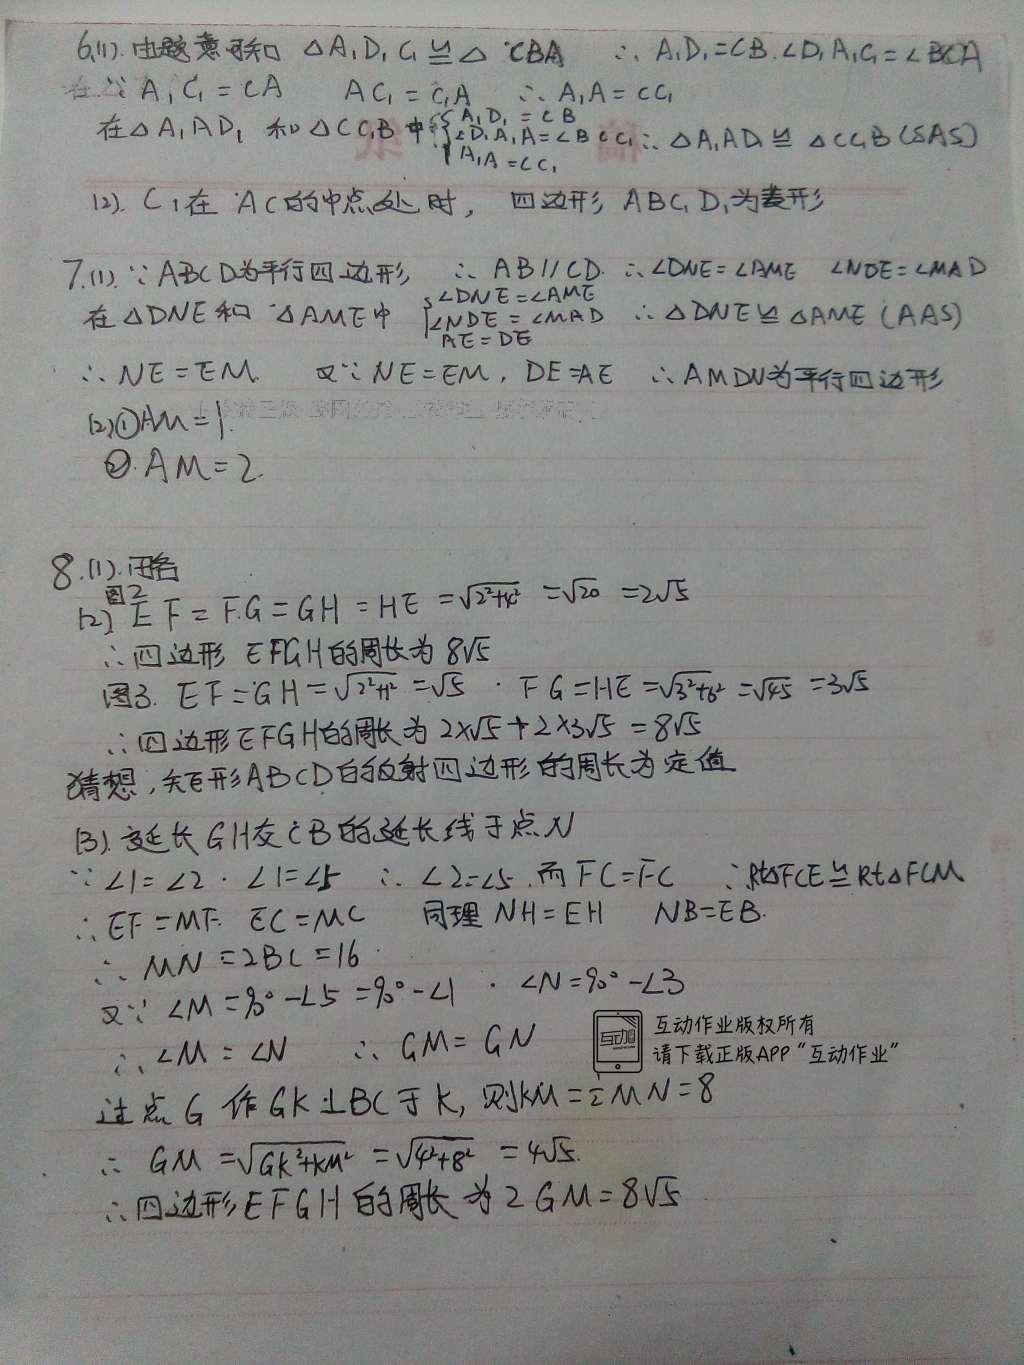 6.(1).由题意可知 △A₁D₁C₁≌△CBA ∴A₁D₁=CB.∠D₁A₁C₁=∠BCA
∵A₁C₁=CA AC₁=C₁A ∴A₁A=CC₁
在△A₁AD₁和△CC₁B中{A₁D₁=CB
∠D₁A₁A=∠BCC₁ ∴△A₁AD₁≌△CC₁B(SAS)
A₁A=CC₁
(2).C₁在AC的中点处时,四边形ABC₁D₁为菱形
7.(1).∵ABCD为平行四边形 ∴AB//CD.∴∠DNE=∠AME ∠NDE=∠MAD
在△DNE和△AME中{∠DNE=∠AME
∠NDE=∠MAD ∴△DNE≌△AME(AAS)
AE=DE
∴NE=EM. 又∵NE=EM,DE=AE ∴AMDN为平行四边形
(2)①AM=1.
②.AM=2.
8.(1).略
(2)图2 EF=FG=GH=HE=√2²+4²=√20=2√5
∴四边形EFGH的周长为8√5
图3.EF=GH=√2²+1²=√5.FG=HE=√3²+6²=√45=3√5
∴四边形EFGH的周长为2×√5+2×3√5=8√5
猜想,矩形ABCD的反射四边形的周长为定值
(3).延长GH交CB的延长线于点N
∵∠1=∠2.∠1=∠5 ∴∠2=∠5.而FC=FC ∴Rt△FCE≌Rt△FCM
∴EF=MF.EC=MC 同理NH=EH NB=EB.
∴MN=2BC=16
又∵∠M=90°-∠5=90°-∠1.∠N=90°-∠3
∴∠M=∠N ∴GM=GN
互动作业版权所有
请下载正版APP“互动作业”
过点G作GK⊥BC于K,则KM=½MN=8
∴GM=√GK²+KM²=√4²+8²=4√5.
∴四边形EFGH的周长为2GM=8√5